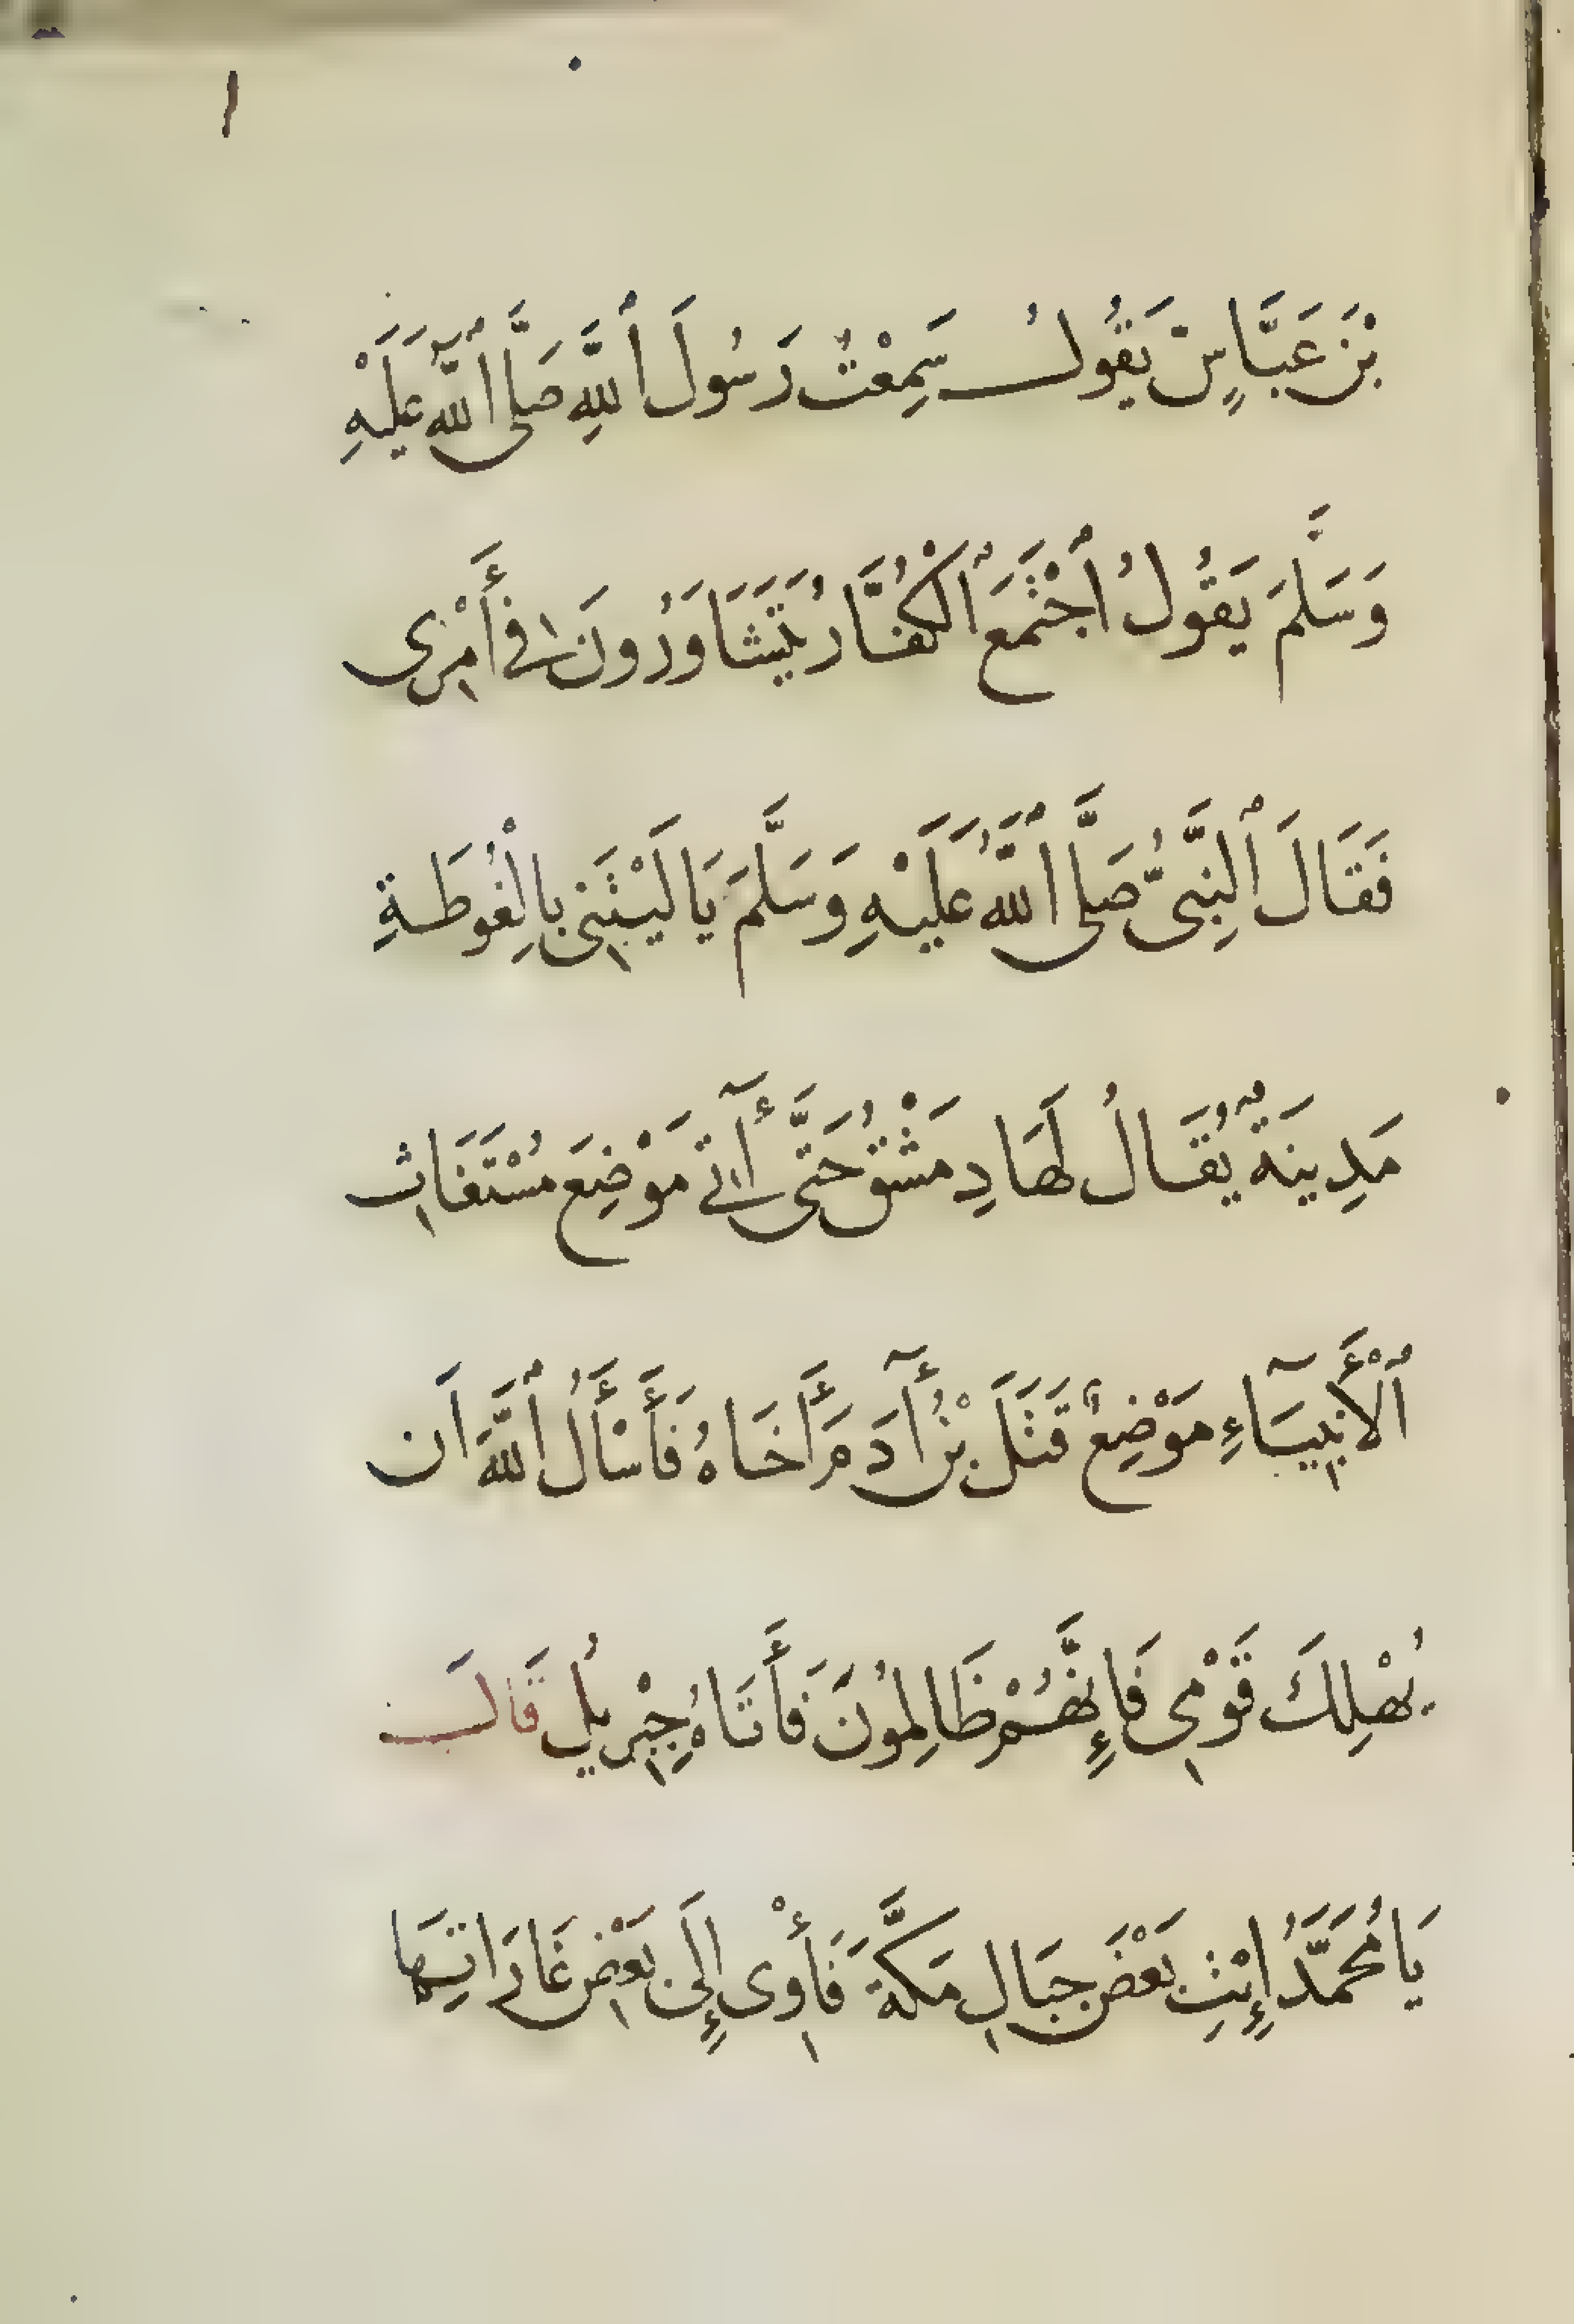 ١
بْنَ عَبَّاسٍ يَقُولُ سَمِعْتُ رَسُولَ ٱللَّهِ صَلَّى ٱللَّهُ عَلَيْهِ
وَسَلَّمَ يَقُولُ ٱجْتَمَعَ ٱلْكُفَّارُ يَتَشَاوَرُونَ فِي أَمْرِى
فَقَالَ ٱلنَّبِىُّ صَلَّى ٱللَّهُ عَلَيْهِ وَسَلَّمَ يَا لَيْتَنِى بِالْغُوطَةِ
مَدِينَةٌ يُقَالُ لَهَا دِمَشْقُ حَتَّى أٓتِي مَوْضِعَ مُسْتَغَاثِ
ٱلْأَنْبِيَآءِ مَوْضِعٌ قَتَلَ بْنُ أٓدَمَ أَخَاهُ فَأَسْأَلُ ٱللَّهَ اَن
يُهْلِكَ قَوْمِى فَإِنَّهُمْ ظَالِمُونَ فَأَتَاهُ جِبْرِيلُ قَالَ
يَا مُحَمَّدُ إِئْتِ بَعْضَ جِبَالِ مَكَّةَ فَأْوِى إِلَى بَعْضِ غَارَاتِهَا